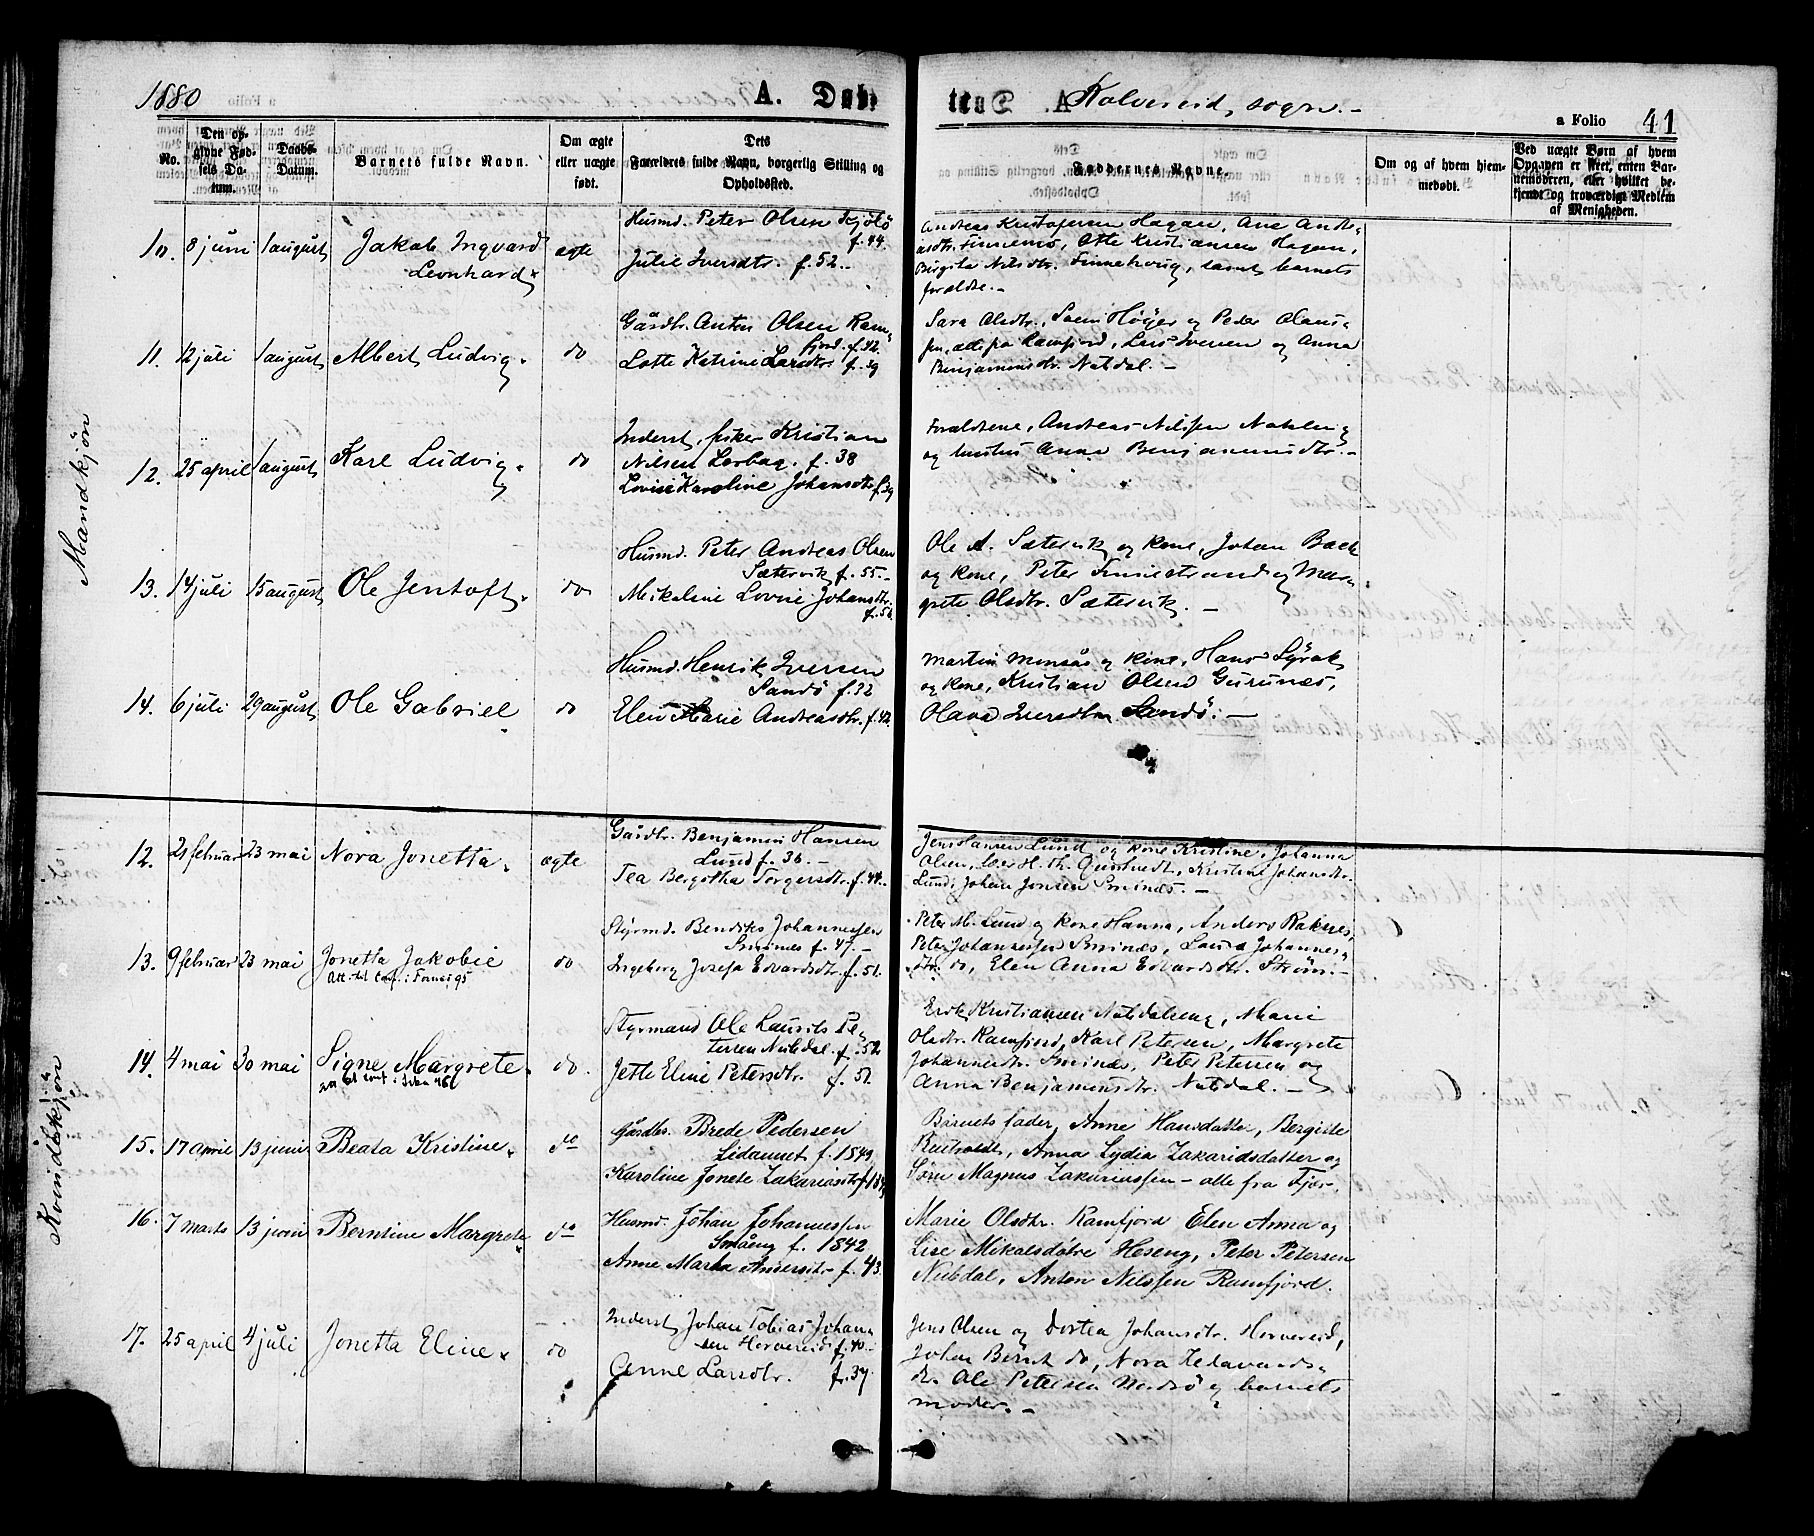 1880
A. Døbte
Kolvereid sogn.-
a Folio 41
No.
Den opgivne Fødsels Datum.
Daabs-Datum.
Barnets fulde Navn.
Om ægte eller uægte født.
Dets Forældres fulde Navn, borgerlig Stilling og Opholdssted.
Faddernes Navne.
Om og af hvem hjemmedøbt.
Ved uægte Børn af hvem Opgaven er skeet, enten Barnemoderen, eller hvilket bekjendt og troværdigt Medlem af Menigheden.
Mandkjøn
10. 8 juni 1 august Jakob Ingvard
Leonhard
ægte
Husmd. Peter Olsen
f. 44.
Julie Iversdtr. f. 52.
Andreas Kristofersen Hagan, Ane Andreasdtr. Finnemo, Otte Kristiansen Hagan,
Birgite Nilsdtr. Finnehoug, samt barnets
forældre.-
11. 12 juli 1 august Albert Ludvig. do
Gårdbr. Anton Olsen Ramfjord. f. 42.
Lotte Katrine Larsdtr. f. 39
Sara Olsdtr., Høyer og Peder
alle fra Ramfjord, Iversen og Anna
Benjaminsdtr. Nubdal.-
12. 25 april 1 august Karl Ludvig. do
Inderst, fisker Kristian
Nilsen f. 38
Lovise Karoline Johansdtr. f. 39
Forældrene, Andreas Nilssen
og hustru Anna Benjaminsdtr.-
13. 14 juli 15 august Ole Jentoft. do
Husmd. Peter Andreas Olsen
Sætervik f. 55.-
Mikaline Lovise Johansdtr.
Ole A. Sætervik og kone, Johan Bach
og kone, Peter Finnestrand og Margrete Olsdtr. Sætervik.-
14. 6 juli 29 august Ole Gabriel do
Husmd. Henrik Iversen
Sandø f. 32
Elen Marie Andreasdtr. f. 42.
Martin og kone, Hans
og kone, Kristian Olsen
Olava Iversdtr. Sandø.-
Kvindekjøn
12. 21 februar 23 mai Nora Jonetta. ægte
Gårdbr. Benjamin Hansen
Lund f. 36.-
Tea Bergitha Torgersdtr. f. 44.
Jens Hansen Lund og kone Kristine, Johanna
Olsen, Kristine Johansdtr.
Lund, Johan Jonsen Smines.-
13. 9 februar 23 mai Jonetta Jakobie do
Styrmd. Bendiks Johannessen
Smines f. 47.-
Ingeborg Josefa Edvardsdtr. f. 51.
Peter M. Lund og kone Hanna, Anders Raknes,
Peter Johannessen Smines, Laura Johannesdtr. do, Elen Anna Edvardsdtr. Strøm.-
14. 4 mai 30 mai Signe Margrete. do.
Styrmand Ole Laurits Petersen Nubdal. f. 52
Jette Eline Petersdtr. f. 51.
Erik Kristiansen Nubdaleng, Marie
Olsdtr. Ramfjord, Karl Petersen, Margrete
Johannesdtr. Smines, Peter Petersen og
Anna Benjaminsdtr. Nubdal.-
15. 17 april 13 juni Beata Kristine. do
Gårdbr. Brede Pedersen
f. 1849
Karoline Jonete Zakariasdtr.
Barnets fader, Anne Hansdatter, Bergitte
Anna Lydia Zakariasdatter og
Søren Magnus Zakariassen - alle fra Fjær.
16. 7 marts 13 juni Berntine Margrete do
Husmd. Johan Johannessen
Småeng f. 1842
Anne Marta Andersdtr. f. 43.
Marie Olsdtr. Ramfjord Elen Anna og
Lise Mikalsdøtre Heseng, Peter Petersen
Nubdal, Anton Nilssen Ramfjord.
17. 25 april 4 juli Jonetta Eline. do
Inderst Johan Tobias Johansen Horvereid f. 40.-
Anne Larsdtr. f. 37
Jens Olsen og Dortea Johansdtr. Horvereid,
Johan Bernt do, Nora
Ole Petersen og barnets
moder.-